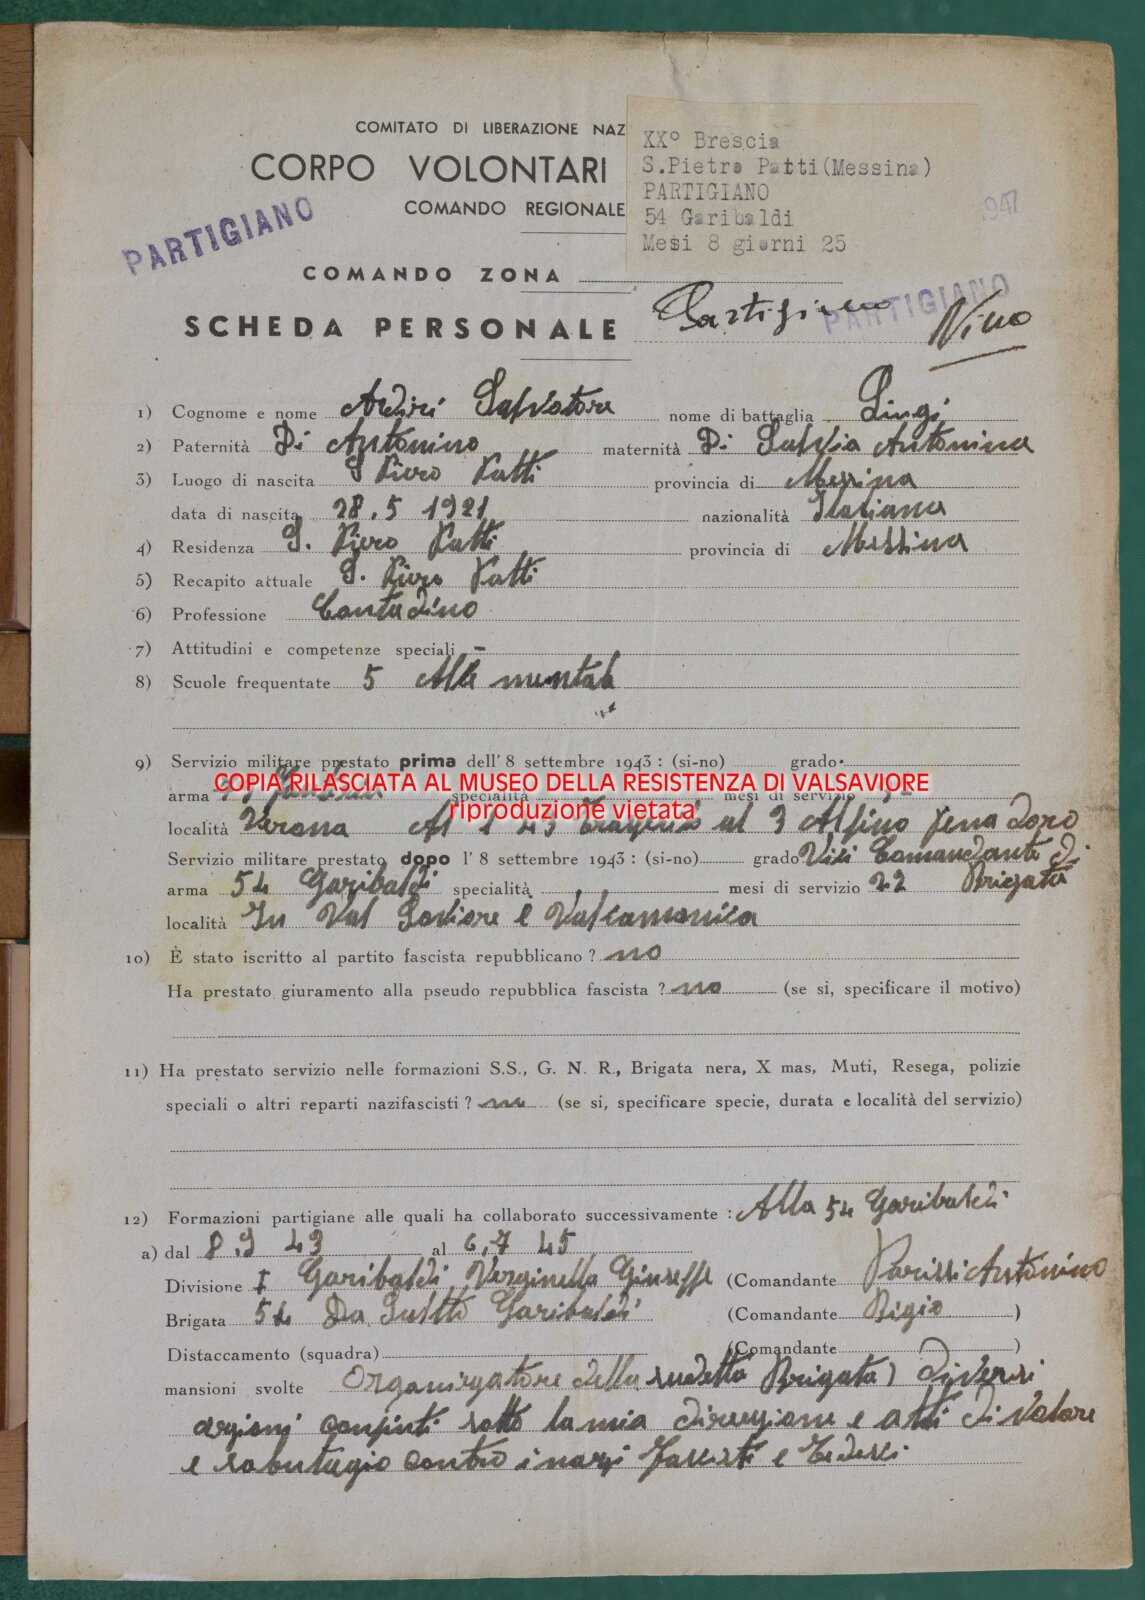 COMITATO DI LIBERAZIONE NAZ
CORPO VOLONTARI
COMANDO REGIONALE
XX° Brescia
S.Pietro Patti(Messina)
PARTIGIANO
54 Garibaldi
Mesi 8 giorni 25
1947
PARTIGIANO
COMANDO ZONA
PARTIGIANO
SCHEDA PERSONALE Partigiano Nino
1) Cognome e nome Ardiri Salvatore nome di battaglia
2) Paternità Di Antonino maternità Di Salvia Antonina
3) Luogo di nascita S Piero Patti provincia di Messina
data di nascita 28.5 1921 nazionalità Italiana
4) Residenza S. Piero Patti provincia di Messina
5) Recapito actuale S. Piero Patti
6) Professione Contadino
7) Attitudini e competenze speciali -
8) Scuole frequentate 5 Alle mentale
9) Servizio militare prestato prima dell'8 settembre 1943: (si-no) grado
COPIA RILASCIATA AL MUSEO DELLA RESISTENZA DI VALSAVIORE
arma specialità mesi di servizio
riproduzione vietata
località Verona Al 1 43 al 3 Alpino
Servizio militare prestato dopo l'8 settembre 1943: (si-no) grado Vici Comandante di
arma 54 Garibaldi specialità mesi di servizio 22 Brigata
località In Val Saviore e Valcamonica
10) È stato iscritto al partito fascista repubblicano? no
Ha prestato giuramento alla pseudo repubblica fascista? no (se si, specificare il motivo)
11) Ha prestato servizio nelle formazioni S.S., G. N. R., Brigata nera, X mas, Muti, Resega, polizie
speciali o altri reparti nazifascisti? no (se si, specificare specie, durata e località del servizio)
12) Formazioni partigiane alle quali ha collaborato successivamente: Alla 54 Garibaldi
a) dal 8.9 43 al 6.7 45
Divisione I Garibaldi Verginella Giuseffe (Comandante Parissi Antonino
Brigata 54 Garibaldi (Comandante Bigio )
Distaccamento (squadra) (Comandante )
mansioni svolte Organizzatore della sudetta Brigata) diversi
azioni sotto la mia direzzione e atti di valore
e sabutagio contro i nazi Fascisti e Tedesci